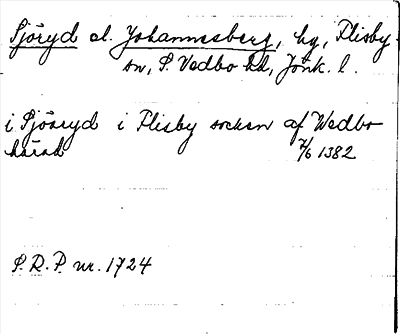 Sjöryd el. Johannesberg, hg, Flisby
sn, S. Vedbo hd, Jönk. l.
i Sjöryd i Flisby socken af Wedbo
härad 7/6 1382
S.R.P. nr. 1724